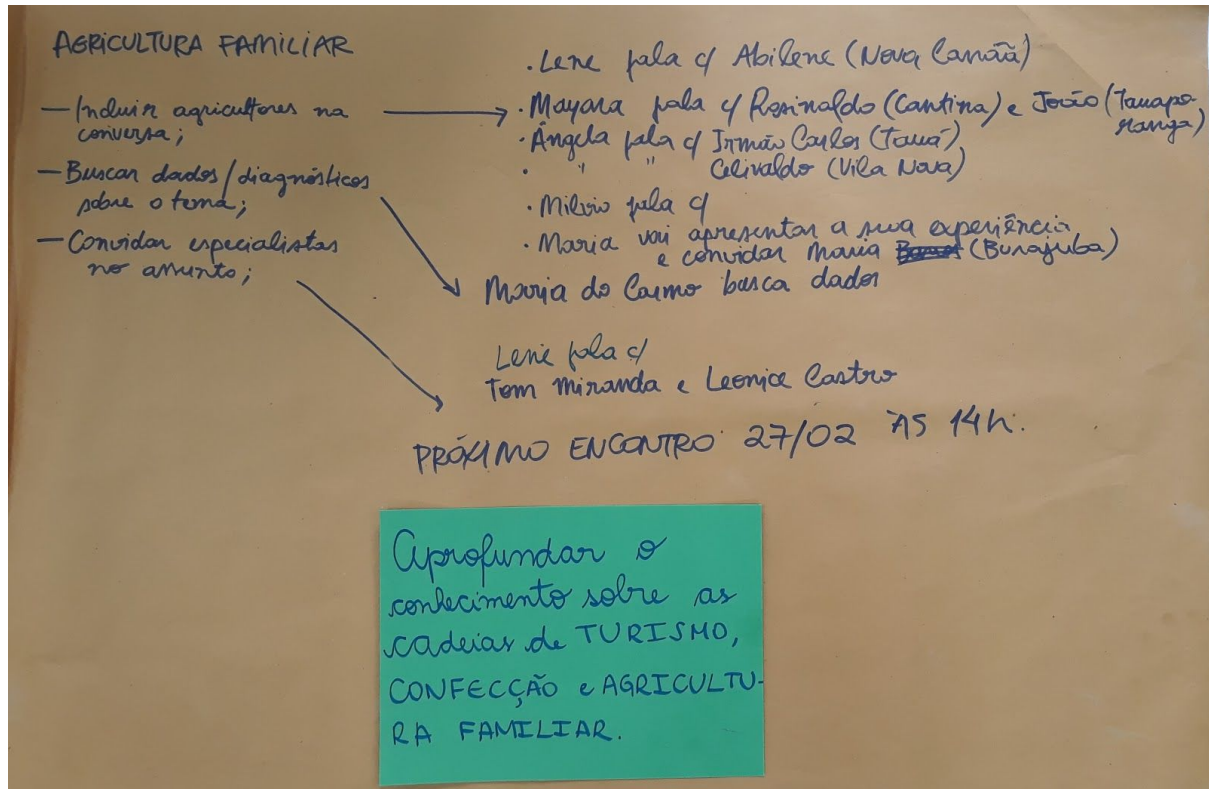 AGRICULTURA FAMILIAR
— Incluir agricultores na
conversa;
— Buscar dados/diagnósticos
sobre o tema;
— Convidar especialistas
no assunto;
· Lene fala c/ Abilene (Nova Canãã)
· Mayara fala c/ Rosinaldo (Cantina) e João (Tauapo
ranga)
· Ângela fala c/ Irmão Carlos (Tauá)
· " " Celivaldo (Vila Nova)
· Milvio fala c/
· Maria vai apresentar a sua experiência
e convidar Maria (Burajuba)
Maria do Carmo busca dados
Lene fala c/
Tom Miranda e Leonice Castro
PRÓXIMO ENCONTRO 27/02 ÀS 14h.
Aprofundar o
conhecimento sobre as
cadeias de TURISMO,
CONFECÇÃO e AGRICULTU-
RA FAMILIAR.